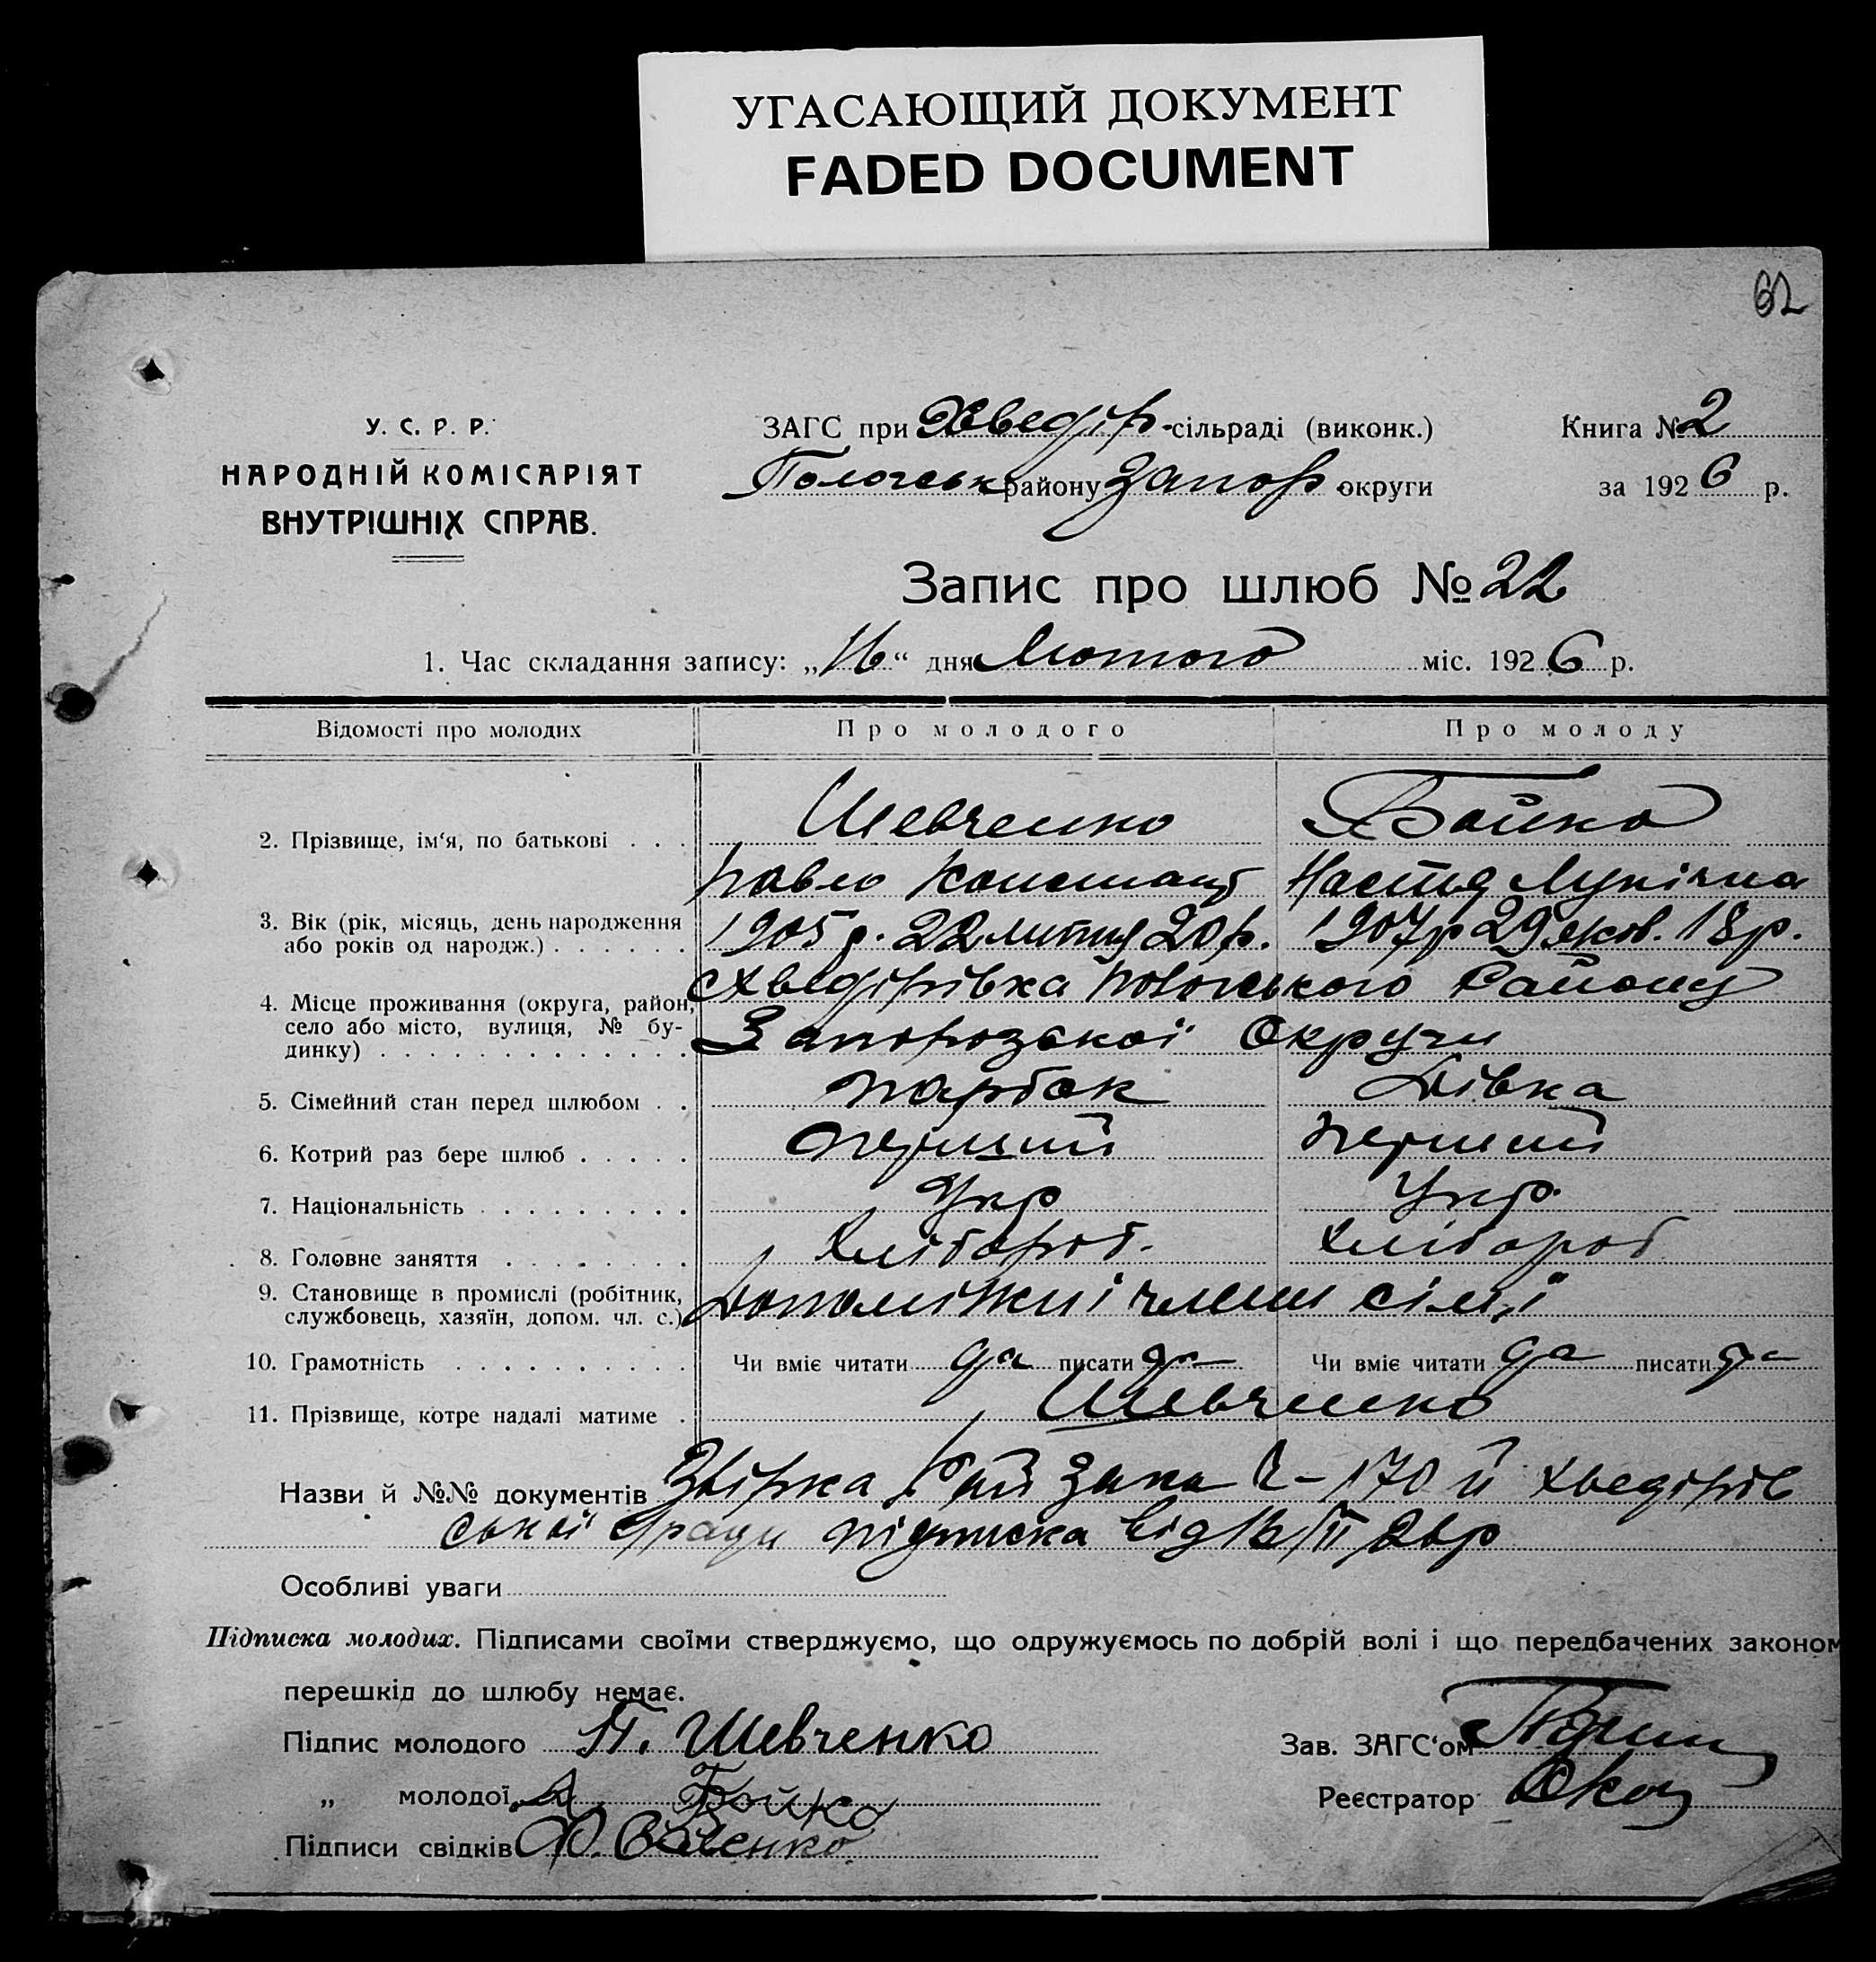 УГАСАЮЩИЙ ДОКУМЕНТ
FADED DOCUMENT
62
У. С. Р. Р.
НАРОДНІЙ КОМІСАРІЯТ
ВНУТРІШНІХ СПРАВ.
ЗАГС при Хведір-сільраді (виконк.)
Пологськ району Запор округи
Книга № 2
за 1926 р.
Запис про шлюб № 22
1. Час складання запису: „16“ дня Лютого міс. 1926 р.
Відомості про молодих Про молодого Про молоду
2. Прізвище, ім‘я, по батькові . . . Шевченко Бойко
Павло Констант Настя Лукічна
3. Вік (рік, місяць, день народження
або років од народж.) . . . . . . 1905 р. 22 липня 20 р. 1907 р 29 18 р.
4. Місце проживання (округа, район,
село або місто, вулиця, № бу-
динку) . . . . . . . . . . . . . .
с Хведірівка Пологського Району
Запорозської Округи
5. Сімейний стан перед шлюбом . . парбок Дівка
6. Котрий раз бере шлюб . . . . . перший перший
7. Національність . . . . . . . . . Укр Укр.
8. Головне заняття . . . . . . . . Хлібороб. Хлібороб
9. Становище в промислі (робітник,
службовець, хазяїн, допом. чл. с.) Допоміжні члени сімї
10. Грамотність . . . . . . . . . . Чи вміє читати да писати да Чи вміє читати да писати да
11. Прізвище, котре надалі матиме . Шевченко
Назви й №№ документів Звірка 170 й Хведірів
ської с/ради підписка від /II 26 р
Особливі уваги
Підписка молодих. Підписами своїми стверджуємо, що одружуємось по добрій волі і що передбачених законом
перешкід до шлюбу немає.
Підпис молодого П. Шевченко
Зав. ЗАГС‘ом
„ молодої Бойко
Реєстратор
Підписи свідків